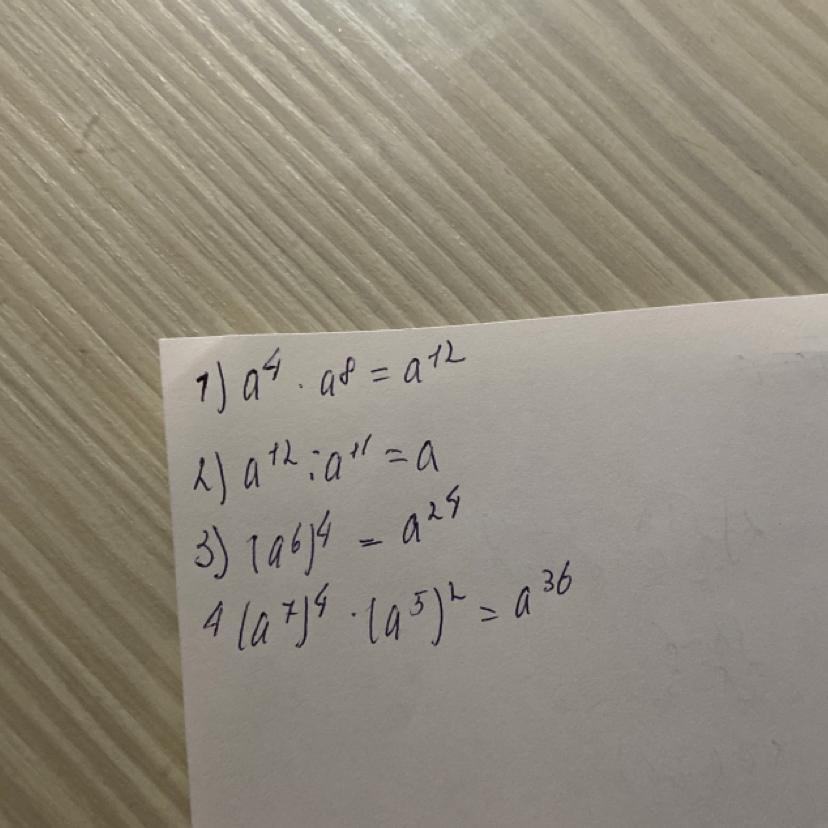 1) a⁴ · a⁸ = a¹²
2) a¹² : a¹¹ = a
3) (a⁶)⁴ = a²⁴
4 (a⁷)⁴ · (a⁵)² = a³⁶